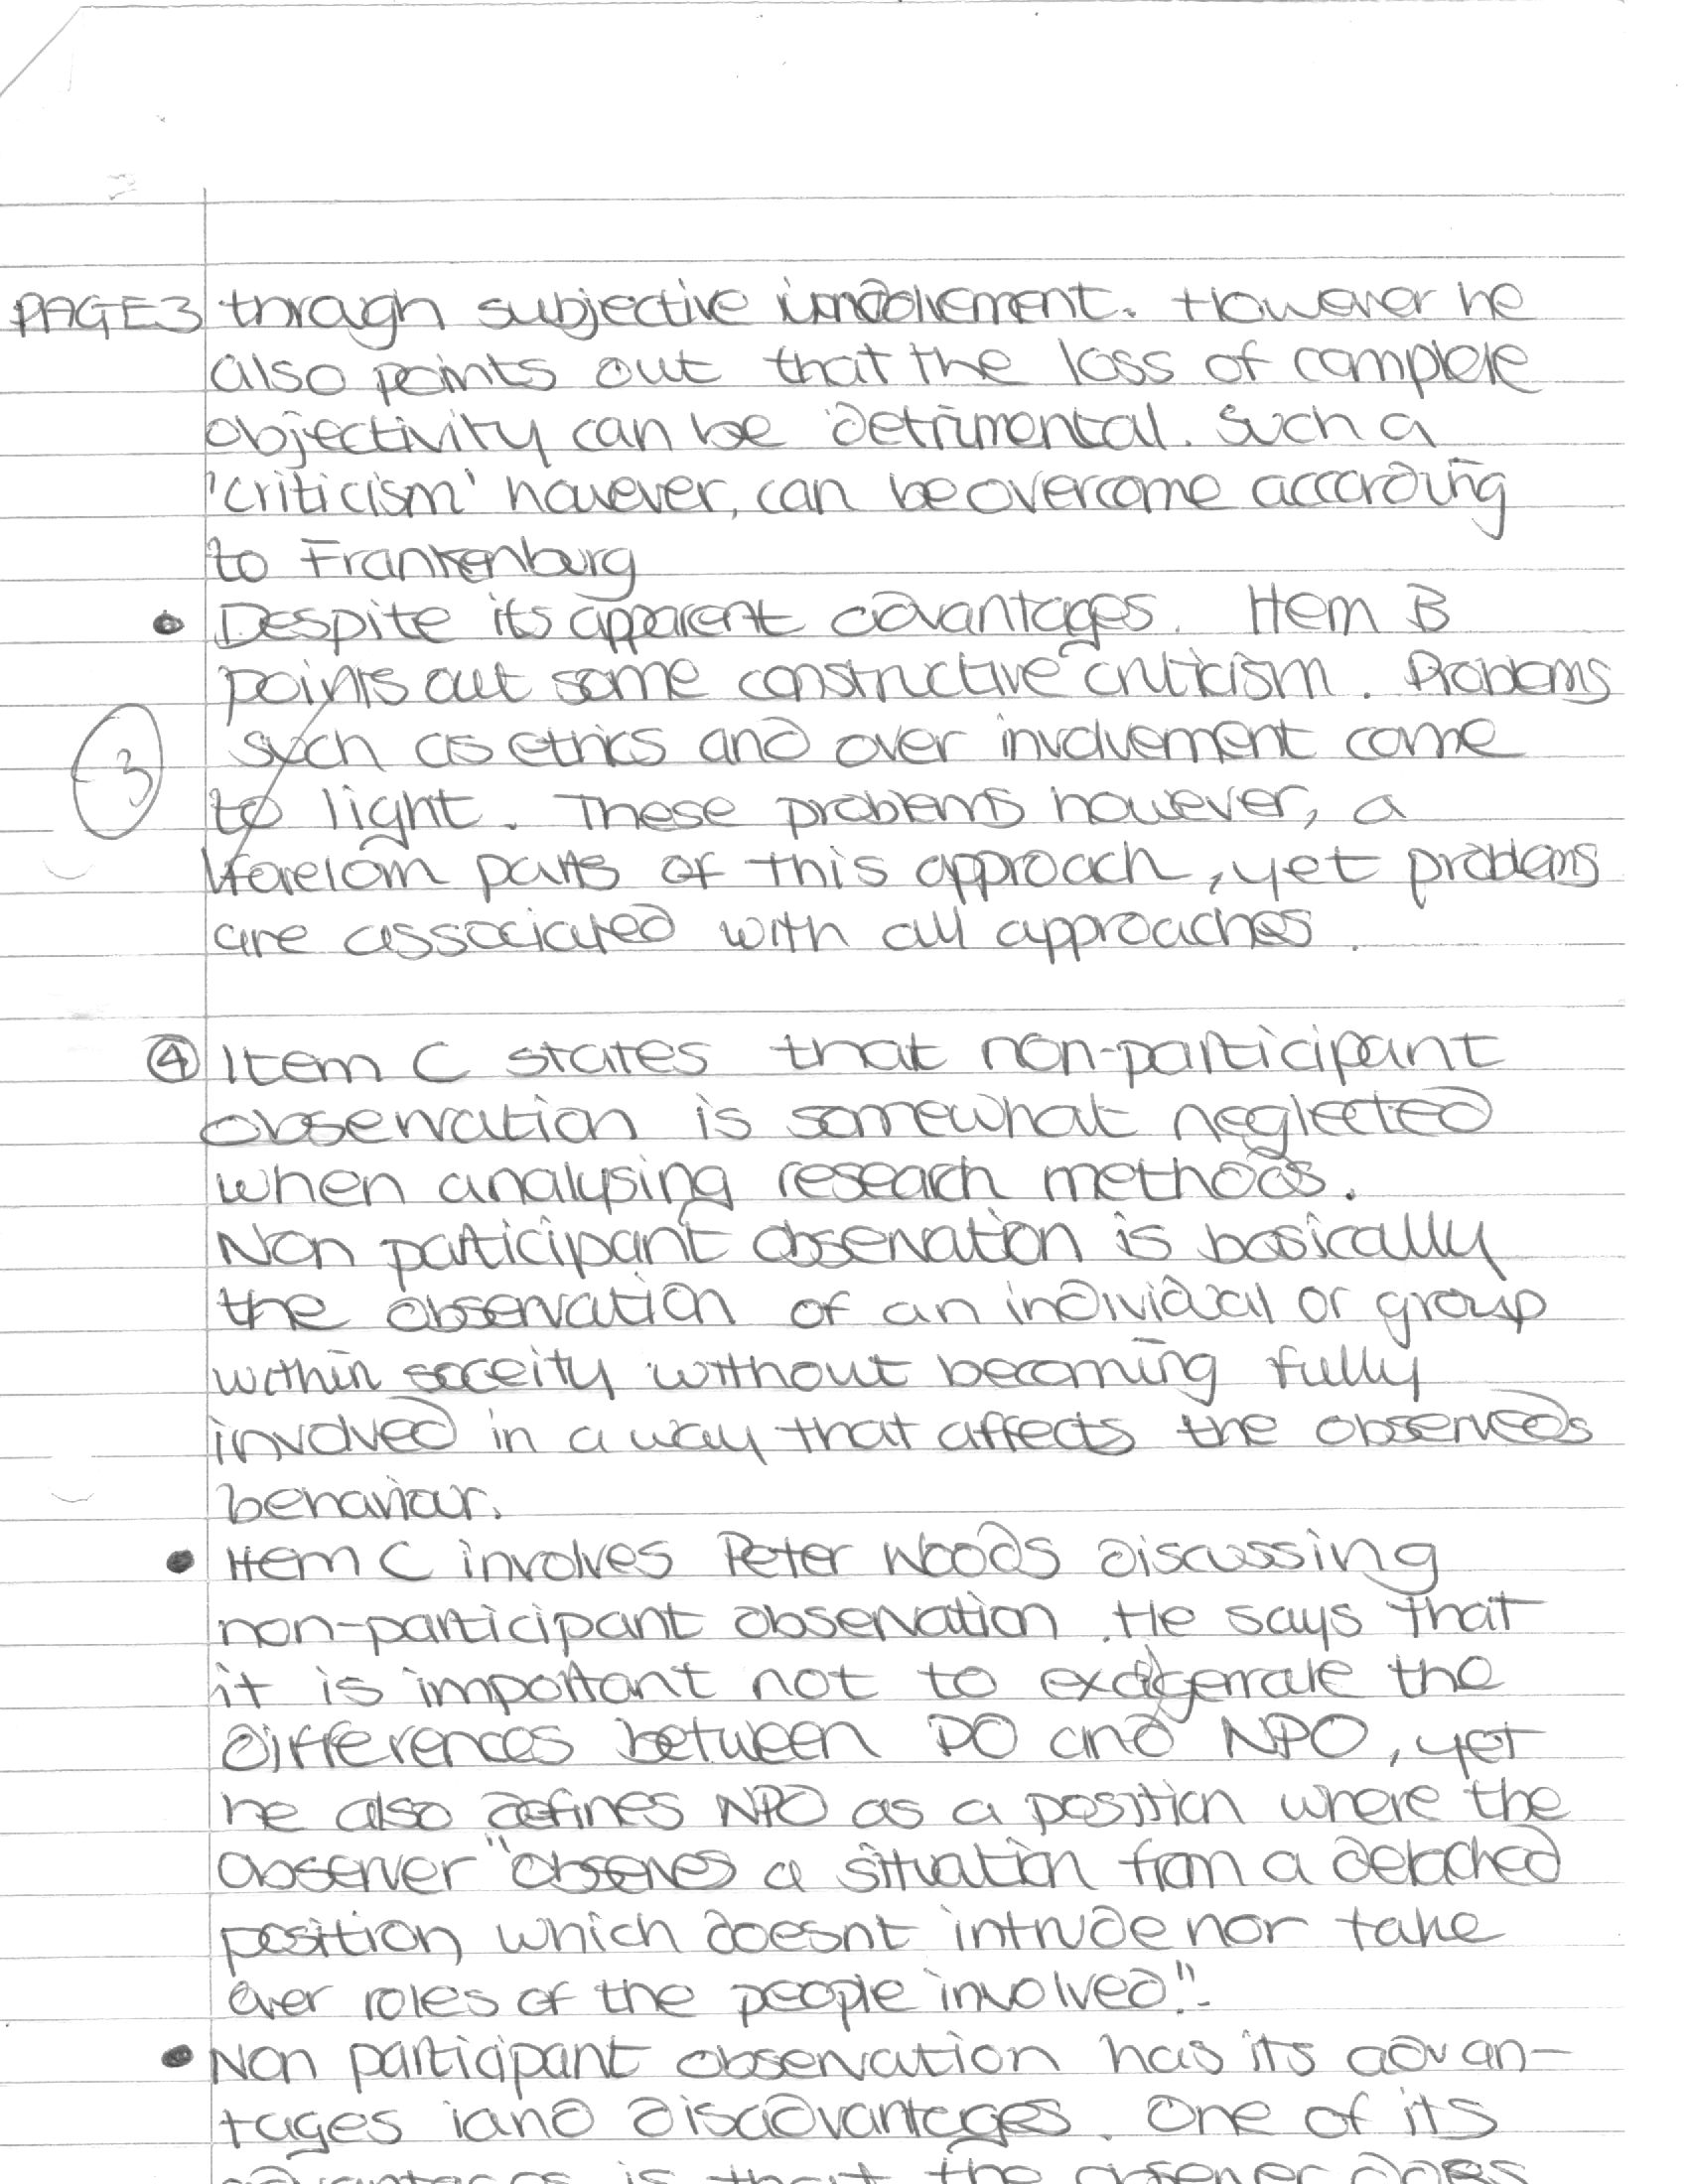 PAGE 3 through subjective involvement. However he
also points out that the loss of complete
objectivity can be detrimental. Such a
'criticism' however, can be overcome according
to Frankenburg
• Despite its apparent advantages. Item B
points out some constructive criticism. Problems
such as ethics and over involvement come
3
to light. These problems however, a
parts of this approach, yet problems
are associated with all approaches.
④ Item C states that non-participant
observation is somewhat neglected
when analysing research methods.
Non participant observation is basically
the observation of an individual or group
within soceity without becoming fully
involved in a way that affects the observeds
behaviour.
• Item C involves Peter Woods discussing
non-participant observation. He says that
it is important not to exagerrate the
differences between PO and NPO, yet
he also defines NPO as a position where the
observer "observes a situation from a detached
position, which doesnt intrude nor take
over roles of the people involved."
• Non participant observation has its advan-
tages and disadvantages. One of its
advantages is that the observer does